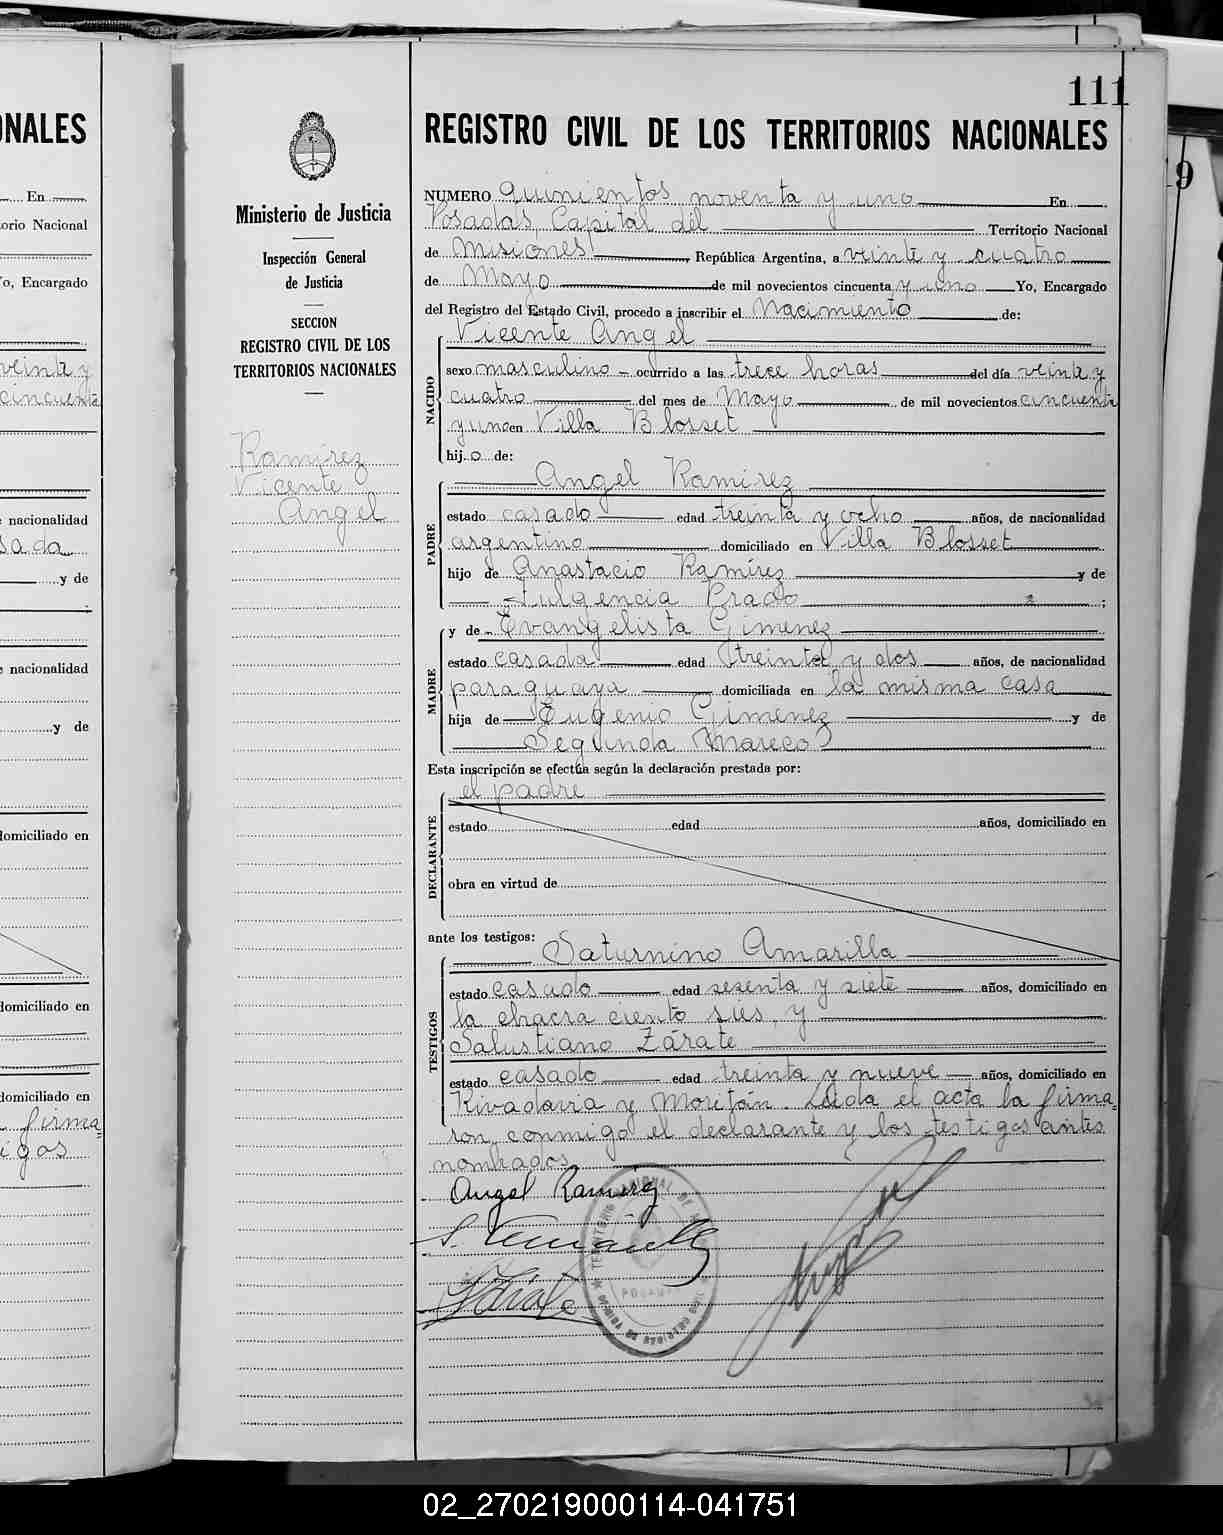 ONALES
En
orio Nacional
o, Encargado
veinte y
cincuenta
e nacionalidad
sada
y de
e nacionalidad
y de
domiciliado en
domiciliado en
domiciliado en
firma=
igos
111
19
Ministerio de Justicia
Inspección General
de Justicia
SECCION
REGISTRO CIVIL DE LOS
TERRITORIOS NACIONALES
Ramírez
Vicente
Angel
REGISTRO CIVIL DE LOS TERRITORIOS NACIONALES
NUMERO quinientos noventa y uno En
Posadas, Capital del Territorio Nacional
de Misiones, República Argentina, a veinte y cuatro
de Mayo de mil novecientos cincuenta y uno Yo, Encargado
del Registro del Estado Civil, procedo a inscribir el Nacimiento de:
Vicente Angel
NACIDO
sexo masculino ocurrido a las trece horas del día veinte y
cuatro del mes de Mayo de mil novecientos cincuenta
y uno en Villa Blosset
hijo de:
Angel Ramírez
PADRE
estado casado edad treinta y ocho años, de nacionalidad
argentino domiciliado en Villa Blosset
hijo de Anastacio Ramírez y de
Fulgencia Prado ;
y de Evangelista Gimenez
MADRE
estado casada edad treinta y dos años, de nacionalidad
paraguaya domiciliada en la misma casa
hija de Eugenio Gimenez y de
Segunda Mareco
Esta inscripción se efectúa según la declaración prestada por:
el padre
DECLARANTE
estado edad años, domiciliado en
obra en virtud de
ante los testigos:
Saturnino Amarilla
TESTIGOS
estado casado edad sesenta y siete años, domiciliado en
la chacra ciento seis, y
Salustiano Zárate
estado casado edad treinta y nueve años, domiciliado en
Rivadavia y Moritán. Leida el acta la firma=
ron conmigo el declarante y los testigos antes
nombrados.
Angel Ramirez
S. Amarilla
S Zárate
POSADAS
02_270219000114-041751